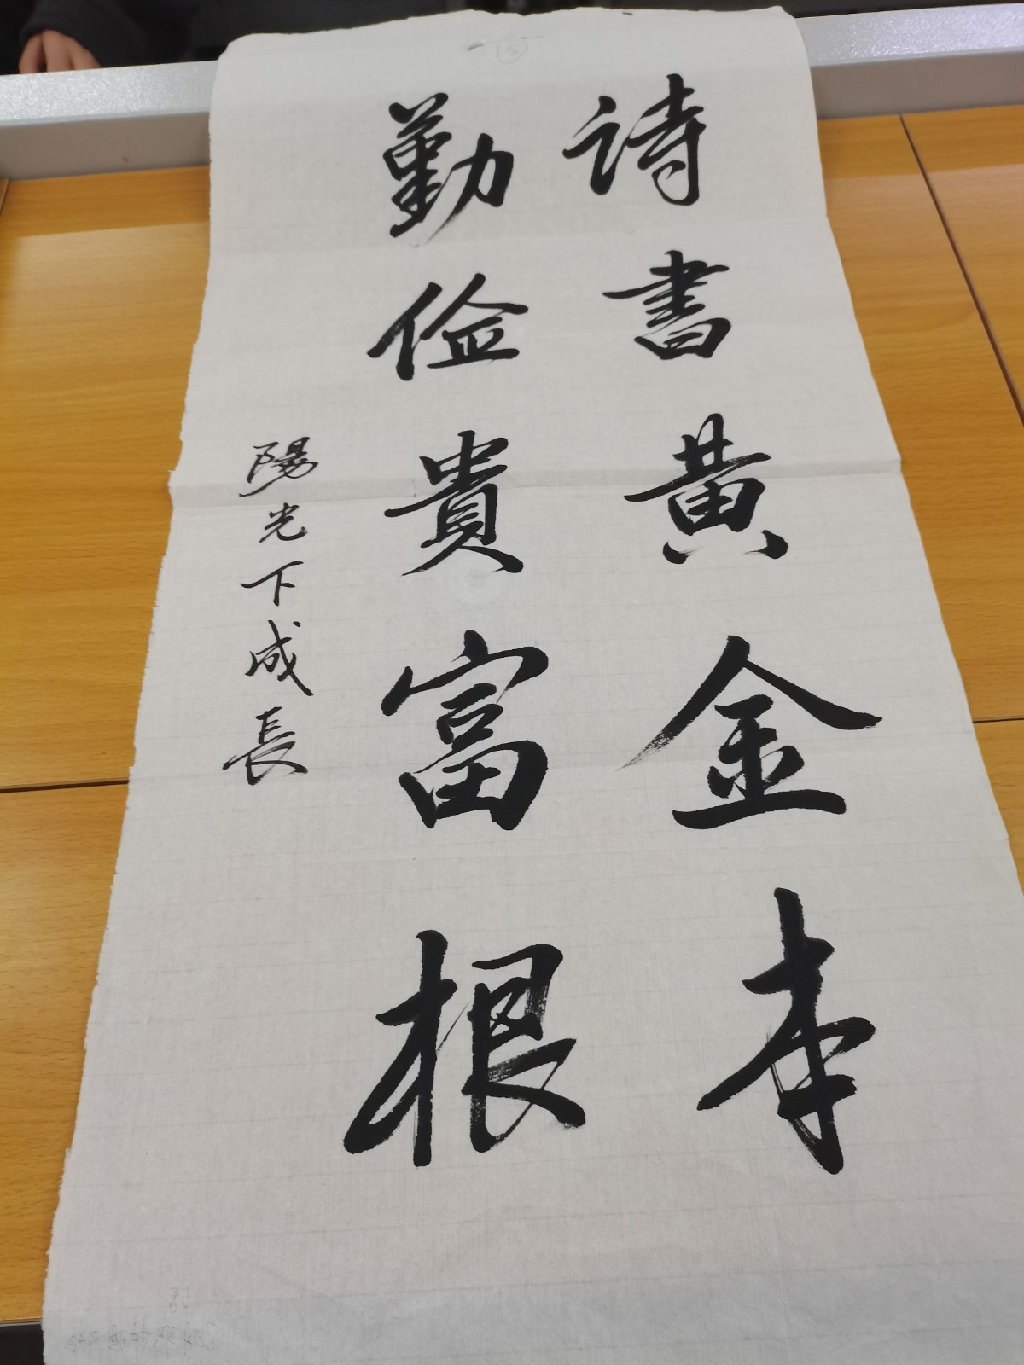 詩書黃金本
勤儉貴富根
陽光下成長